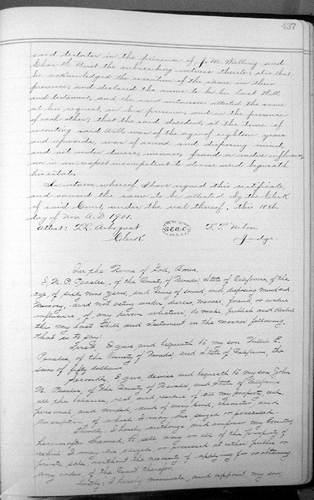 437
said testator in the presence of J. M. Walling and
Chas. W. Kent the subscribing witnesses thereto; also that
he acknowledged the execution of the same in their
presence, and declared the same to be his last Will
and testament, and the said witnesses attested the same
at his request, in his presence, and in the presence
of each other; that the said decedent, at the time of
executing said Will, was of the age of eighteen years
and upwards, was of sound and disposing mind,
and not under duress, menace, fraud or undue influence,
nor in any respect incompetent to devise and bequeath
his estate.
In witness whereof I have signed this certificate,
and caused the same to be attested by the Clerk
of said Court, under the seal thereof, this 18th
day of Nov A.D. 1901.
Attest: F. L. Arbogast
Clerk
F. T. Nilon
Judge
In the Name of God, Amen
of the County of Nevada, State of California, of the
age of sixty nine years, and being of sound and disposing mind and
Memory, and not acting under duress, menace, fraud or undue
influence, of any person whatever, do make, publish and declare
this my last Will and testament in the manner following,
that is to say:
First, I give and bequeath to my son
of the County of Nevada and State of California, the
sum of fifty dollars.
Secondly, I give, devise and bequeath to my son John
of the County of Nevada, and State of California
all the balance, rest and residue of all my property, real,
personal and mixed, and of every kind, character and
description of which I may die seized or possessed.
Thirdly, I hereby authorize and empower my Executor
hereinafter named to sell any or all of the property of
which I may die seized or possessed at either public or
private sale, without the necessity of applying for or obtaining
any order of the Court therefor.
Lastly, I hereby nominate, and appoint my son,